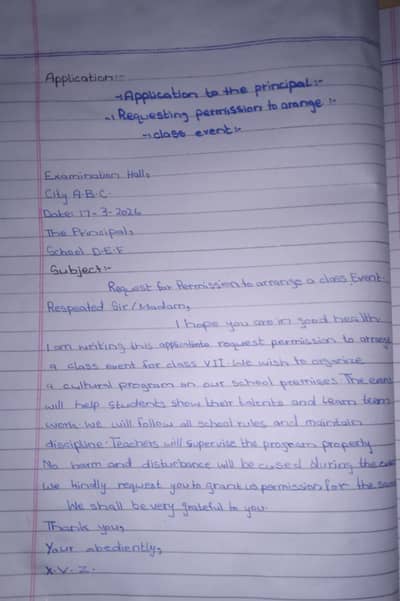 Application:-
-:Application to the principal:-
-:Requesting permission to arange:-
-:class event:-
Examination Hall,
City A.B.C.
Date: 17-3-2026
The Principal,
School D.E.F
Subject:-
Request for Permission to arrange a class Event.
Respeated Sir/Madam,
I hope you are in good health
I am writing this application to request permission to arrange
a class event for class VII. We wish to organize
a cultural program on our school premises. The event
will help students show their talents and learn team
work. We will follow all school rules and maintain
discipline. Teachers will supervise the program properly
No harm and disturbance will be cused during the event
We kindly request you to grant us permission for the same
We shall be very grateful to you.
Thank you,
Your obediently,
X.Y.Z.